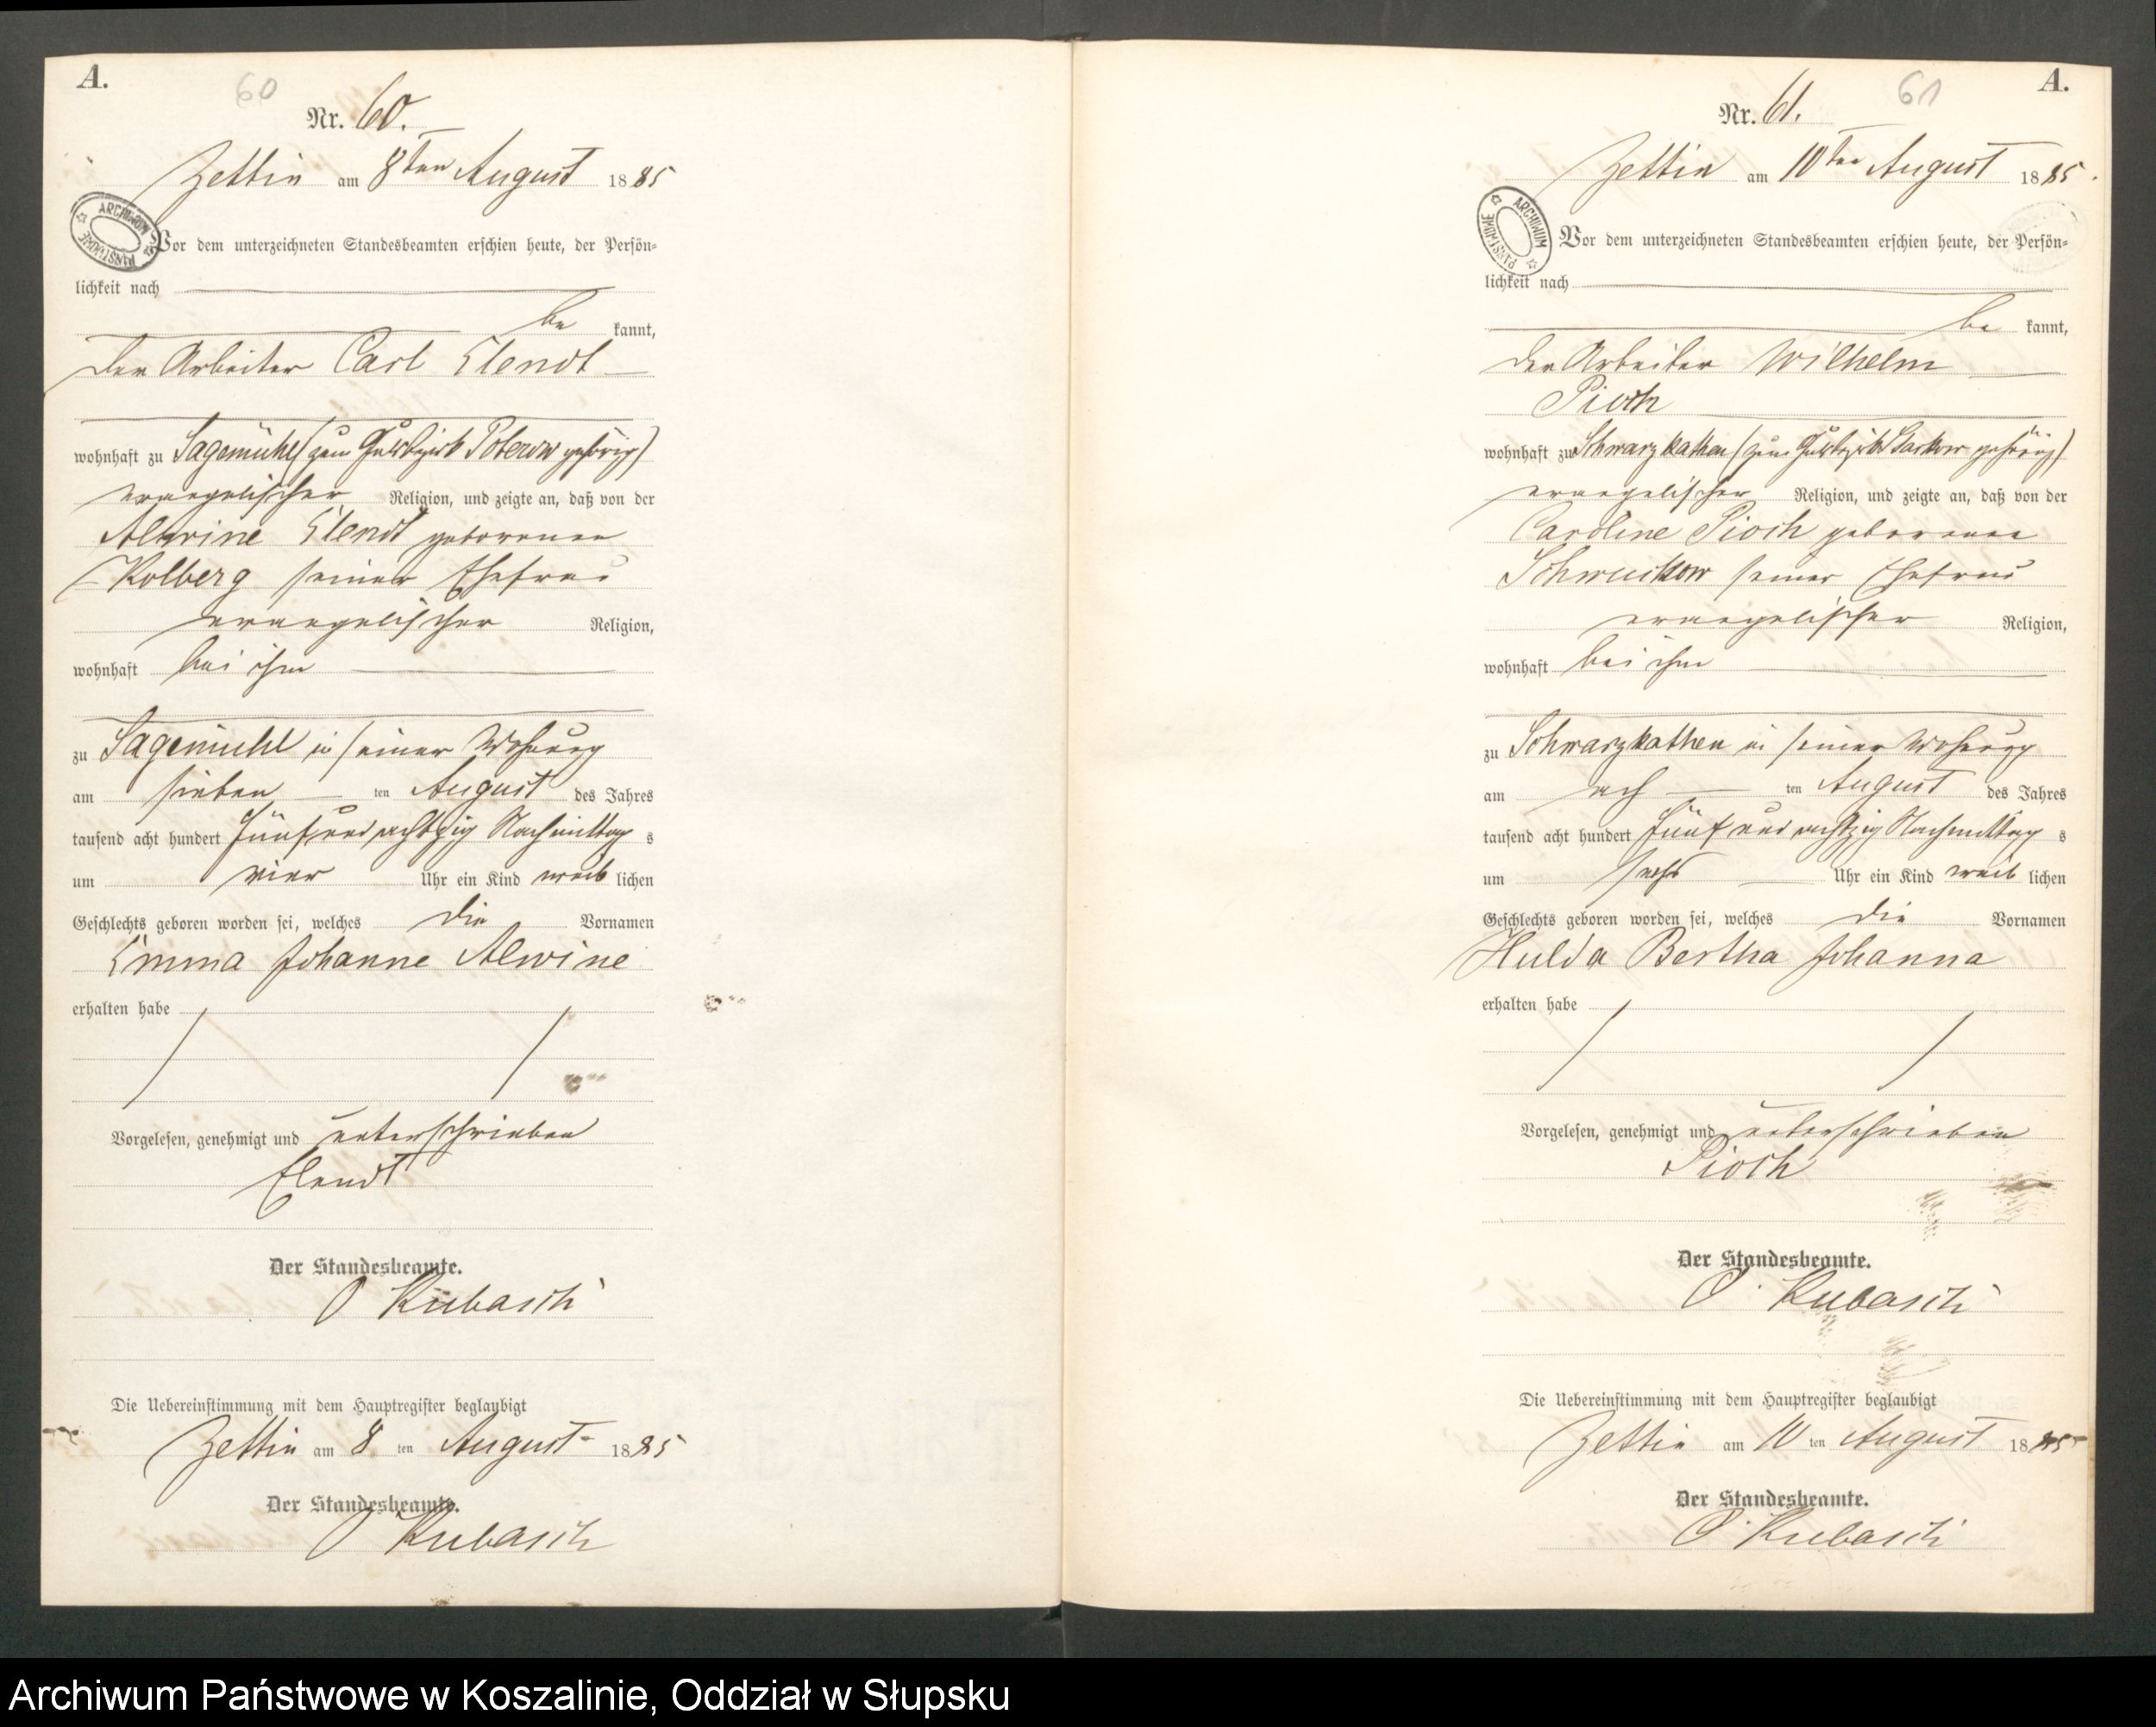 A.
60
Nr. 60.
Zettin am 8ten August 1885
ARCHIWUM PAŃSTWOWE
Vor dem unterzeichneten Standesbeamten erschien heute, der Persön=
lichkeit nach
be kannt,
der Arbeiter Carl Elendt
wohnhaft zu Sagemühl (zum Gutsbezirk Poberow gehörig)
evangelischer Religion, und zeigte an, daß von der
Alwine Elendt geborenen
Kolberg seiner Ehefrau
evangelischer Religion,
wohnhaft bei ihm
zu Sagemühl in seiner Wohnung
am sieben ten August des Jahres
tausend acht hundert fünf und achtzig Nachmittag s
um vier Uhr ein Kind weib lichen
Geschlechts geboren worden sei, welches die Vornamen
Emma Johanne Alwine
erhalten habe
Vorgelesen, genehmigt und unterschrieben
Elendt
Der Standesbeamte.
O Kubasch
Die Uebereinstimmung mit dem Hauptregister beglaubigt
Zettin am 8 ten August 1885
Der Standesbeamte.
O Kubasch
A.
61
Nr. 61.
Zettin am 10ten August 1885.
ARCHIWUM PAŃSTWOWE
Vor dem unterzeichneten Standesbeamten erschien heute, der Persön=
lichkeit nach
be kannt,
der Arbeiter Wilhelm
Pioch
wohnhaft zu Schwarzkathen (zum Gutsbezirk gehörig)
evangelischer Religion, und zeigte an, daß von der
Caroline Pioch geborenen
seiner Ehefrau
evangelischer Religion,
wohnhaft bei ihm
zu Schwarzkathen in seiner Wohnung
am ach ten August des Jahres
tausend acht hundert fünf und achtzig Nachmittag s
um sechs Uhr ein Kind weib lichen
Geschlechts geboren worden sei, welches die Vornamen
Hulda Bertha Johanna
erhalten habe
Vorgelesen, genehmigt und unterschrieben
Pioch
Der Standesbeamte.
O. Kubasch
Die Uebereinstimmung mit dem Hauptregister beglaubigt
Zettin am 10 ten August 1885
Der Standesbeamte.
O. Kubasch
Archiwum Państwowe w Koszalinie, Oddział w Słupsku